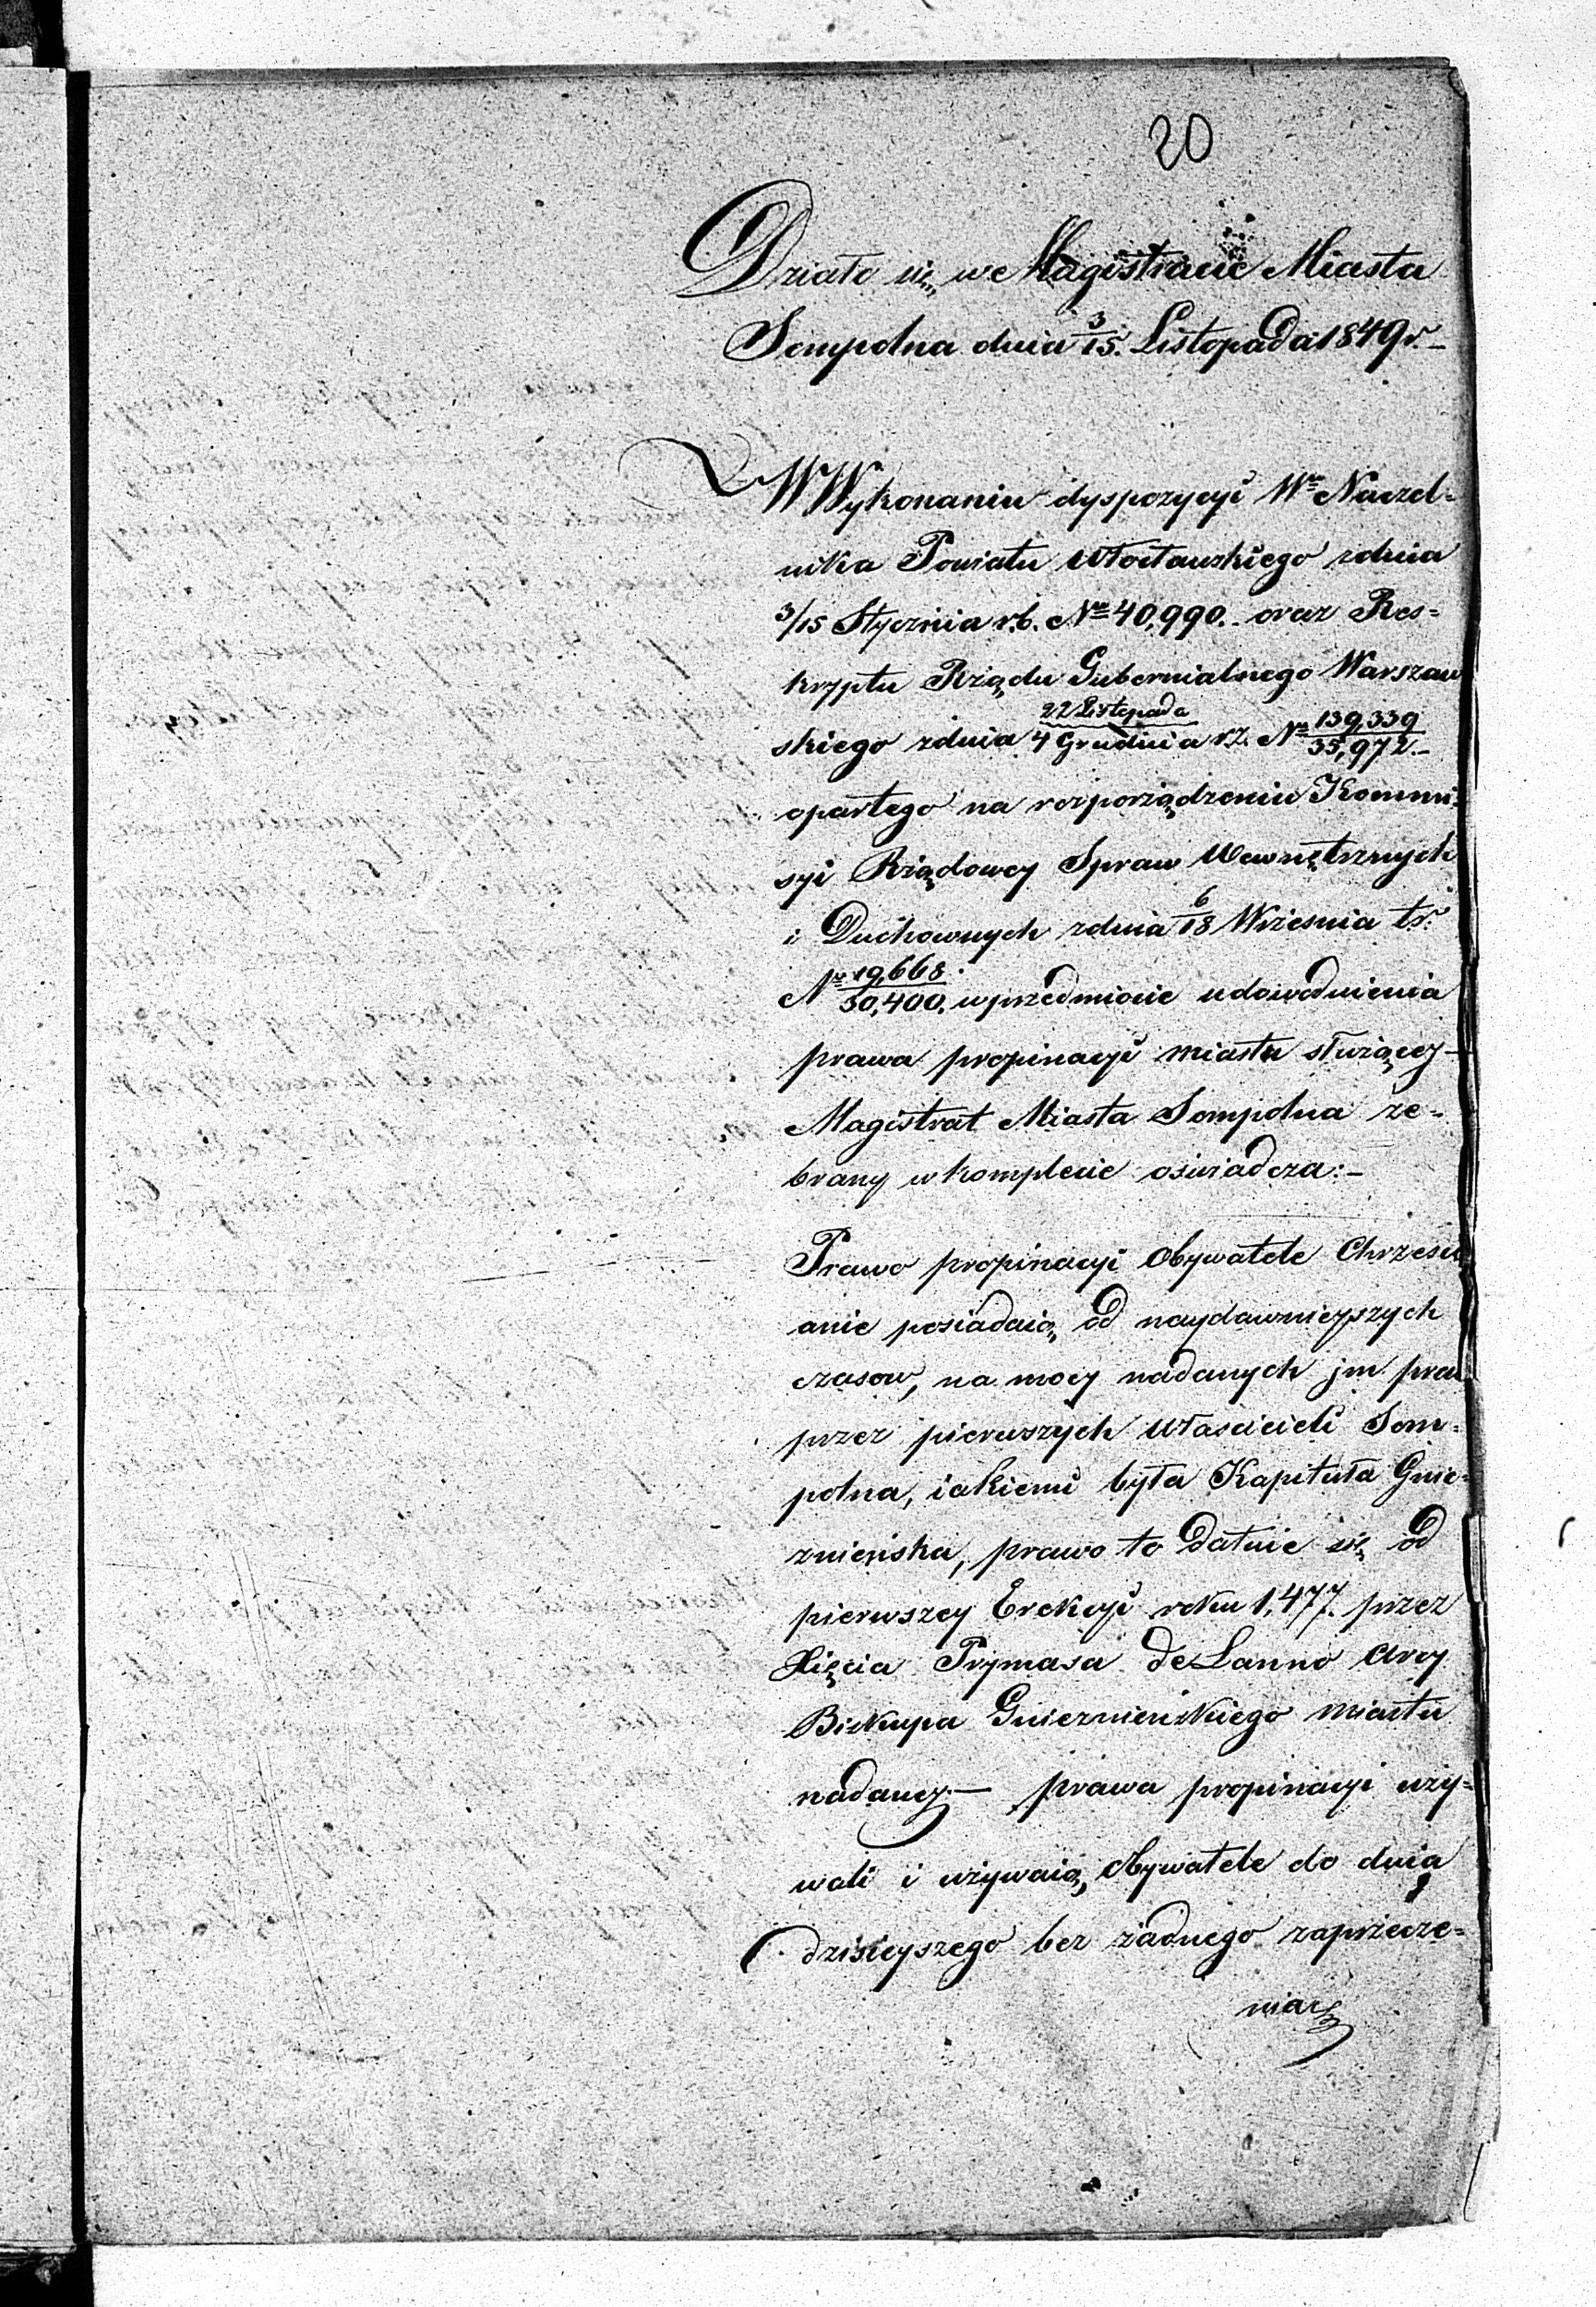 20
Działo się we Magistracie Miasta
Sompolna dnia 3/15. Listopada 1849 r.–
W Wykonaniu dyspozycyi Wgo Naczel=
nika Powiatu Włocławskiego zdnia
3/15 Stycznia r.b. No 40,990.– oraz Res=
kryptu Rządu Gubernialnego Warszaw
skiego zdnia 22 Listopada / 4 Grudnia r.z. No 139,339 / 35,972.–
opartego na rozporządzeniu Kommi=
syi Rządowey Spraw Wewnętrznych
i Duchownych zdnia 6/18 Września t.r.
No 19,668 / 30,400. w przedmiocie udowodnienia
prawa propinacyi miastu służącey –
Magistrat Miasta Sompolna ze=
brany w komplecie oświadcza:–
Prawo propinacyi Obywatele Chrześci
anie posiadaią od naydawnieyszych
czasow, na mocy nadanych jm praw
przez pierwszych Właścicieli Som=
polna, iakiemi była Kapituła Gnie=
znieńska, prawo to datuie się od
pierwszey Erekcyi roku 1,477. przez
Xięcia Prymasa de Lanno Arcy
Biskupa Gnieznieńskiego miastu
nadaney.– prawa propinacyi uży=
wali i używaią Obywatele do dnia
dzisieyszego bez żadnego zaprzecze=
nia